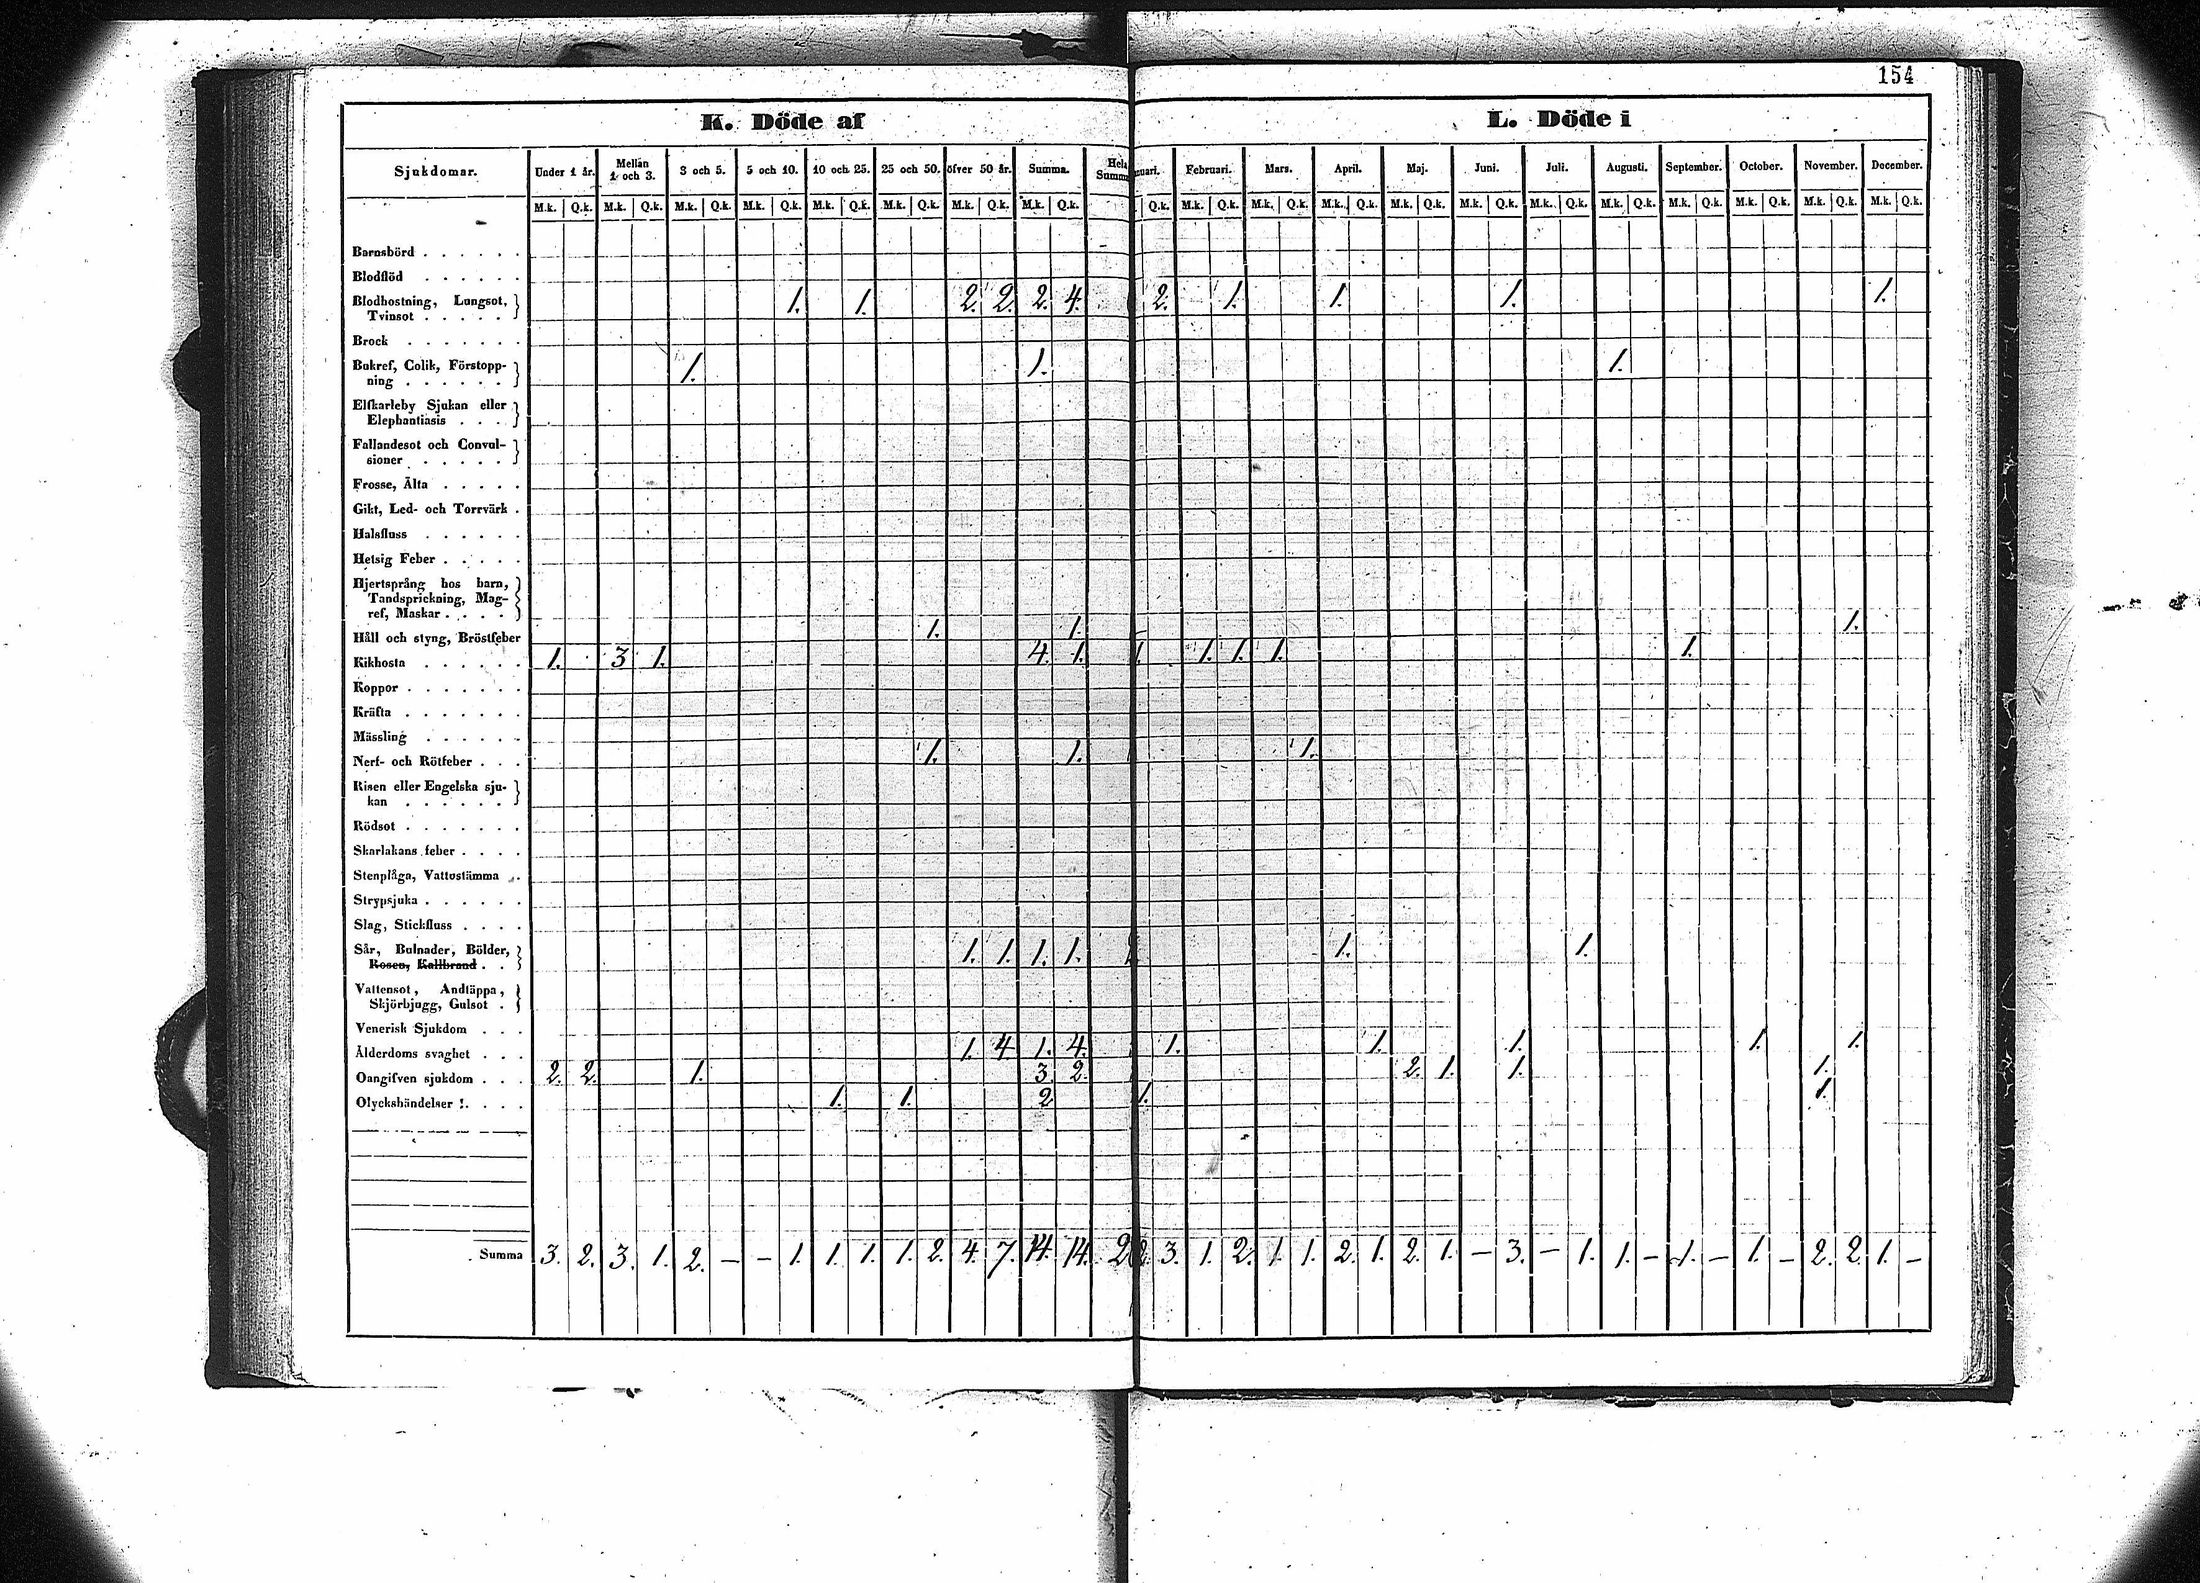 154
K. Döde af L. Döde i
Sjukdomar. Under 1 år. Mellan 1 och 3. 3 och 5. 5 och 10. 10 och 25. 25 och 50. öfver 50 år. Summa. Februari. Mars. April. Maj. Juni. Juli. Augusti. September. October. November. December.
M.k. Q.k. M.k. Q.k. M.k. Q.k. M.k. Q.k. M.k. Q.k. M.k. Q.k. M.k. Q.k. M.k. Q.k. Q.k. M.k. Q.k. M.k. Q.k. M.k. Q.k. M.k. Q.k. M.k. Q.k. M.k. Q.k. M.k. Q.k. M.k. Q.k. M.k. Q.k. M.k. Q.k. M.k. Q.k.
Barnsbörd . . . . . .
Blodflöd . . . . . .
Blodhostning, Lungsot,
Tvinsot . . . . . 1. 1. 2. 2. 2. 4. 2. 1. 1. 1. 1.
Brock . . . . . . .
Bukref, Colik, Förstopp-
ning . . . . . . 1. 1. 1.
Elfkarleby Sjukan eller
Elephantiasis . . .
Fallandesot och Convul-
sioner . . . . .
Frosse, Älta . . . . .
Gikt, Led- och Torrvärk .
Halsfluss . . . . . .
Hetsig Feber . . . . .
Hjertsprång hos barn,
Tandsprickning, Mag-
ref, Maskar . . . .
Håll och styng, Bröstfeber 1. 1. 1.
Kikhosta . . . . . . 1. 3 1. 4. 1. 1. 1. 1. 1. 1.
Koppor . . . . . . .
Kräfta . . . . . . .
Mässling . . . . . .
Nerf- och Rötfeber . . . 1. 1. 1.
Risen eller Engelska sju-
kan . . . . . .
Rödsot . . . . . . .
Skarlakans feber . . . .
Stenplåga, Vattustämma . .
Strypsjuka . . . . . .
Slag, Stickfluss . . . .
Sår, Bulnader, Bölder,
Rosen, Kallbrand . . 1. 1. 1. 1. 1. 1.
Vattensot, Andtäppa,
Skjörbjugg, Gulsot .
Venerisk Sjukdom . . .
Ålderdoms svaghet . . . 1. 4 1. 4. 1. 1. 1. 1. 1.
Oangifven sjukdom . . . 2. 2. 1. 3. 2. 2. 1. 1. 1.
Olyckshändelser . . . . 1. 1. 2 1. 1.
Summa 3. 2. 3. 1. 2. — — 1. 1. 1. 1. 2. 4. 7. 14. 14. 2 2. 3. 1. 2. 1. 1. 2. 1. 2. 1. — 3. — 1. 1. — 1. — 1. — 2. 2. 1. —